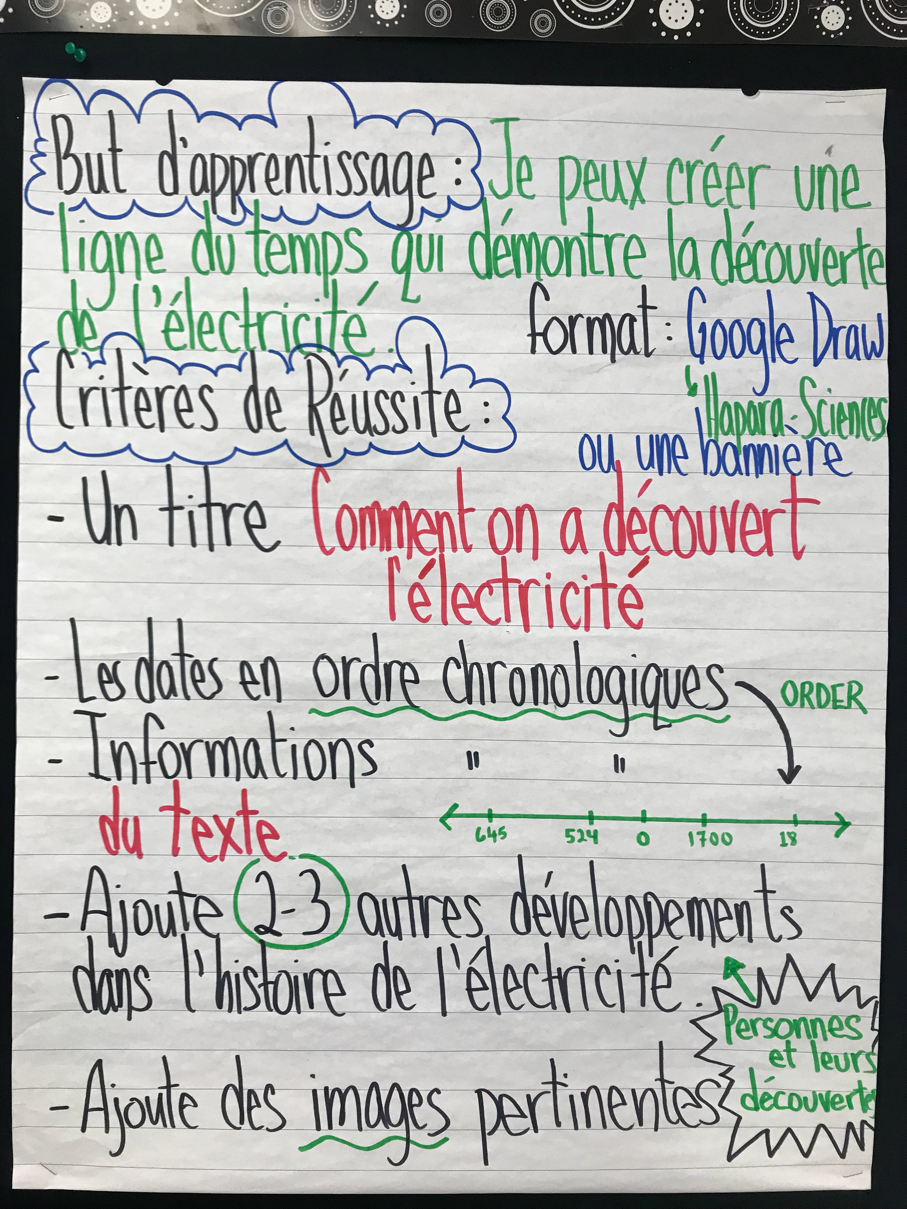 But d'apprentissage : Je peux créer une
ligne du temps qui démontre la découverte
de l'électricité.
format : Google Draw
Hapara-Sciences
ou une bannière
Critères de Réussite :
- Un titre Comment on a découvert
l'électricité
- Les dates en ordre chronologiques
ORDER
- Informations " "
du texte
645 524 0 1700 18
- Ajoute 2-3 autres développements
dans l'histoire de l'électricité.
Personnes
et leurs
découvertes
- Ajoute des images pertinentes